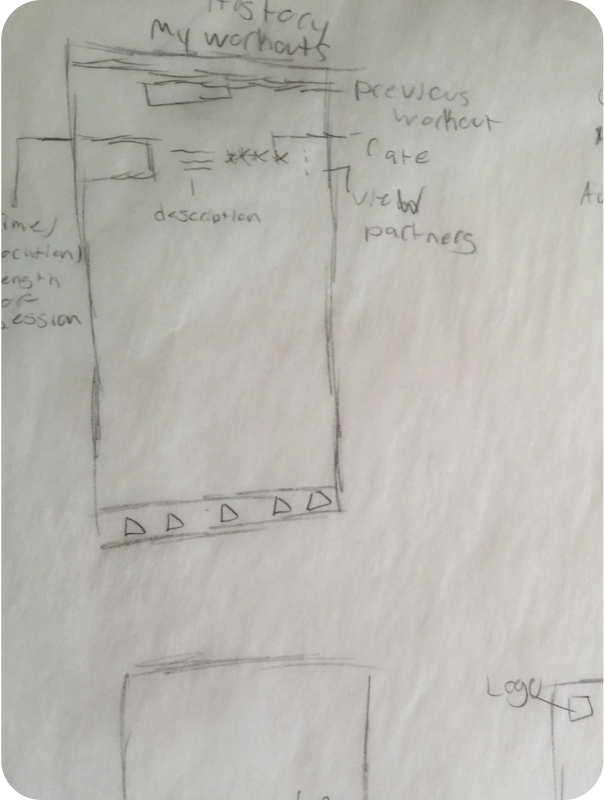 History
My workouts
previous
workout
rate
view
partners
description
ime/
ocation)
ength
of
ession
Au
Logo